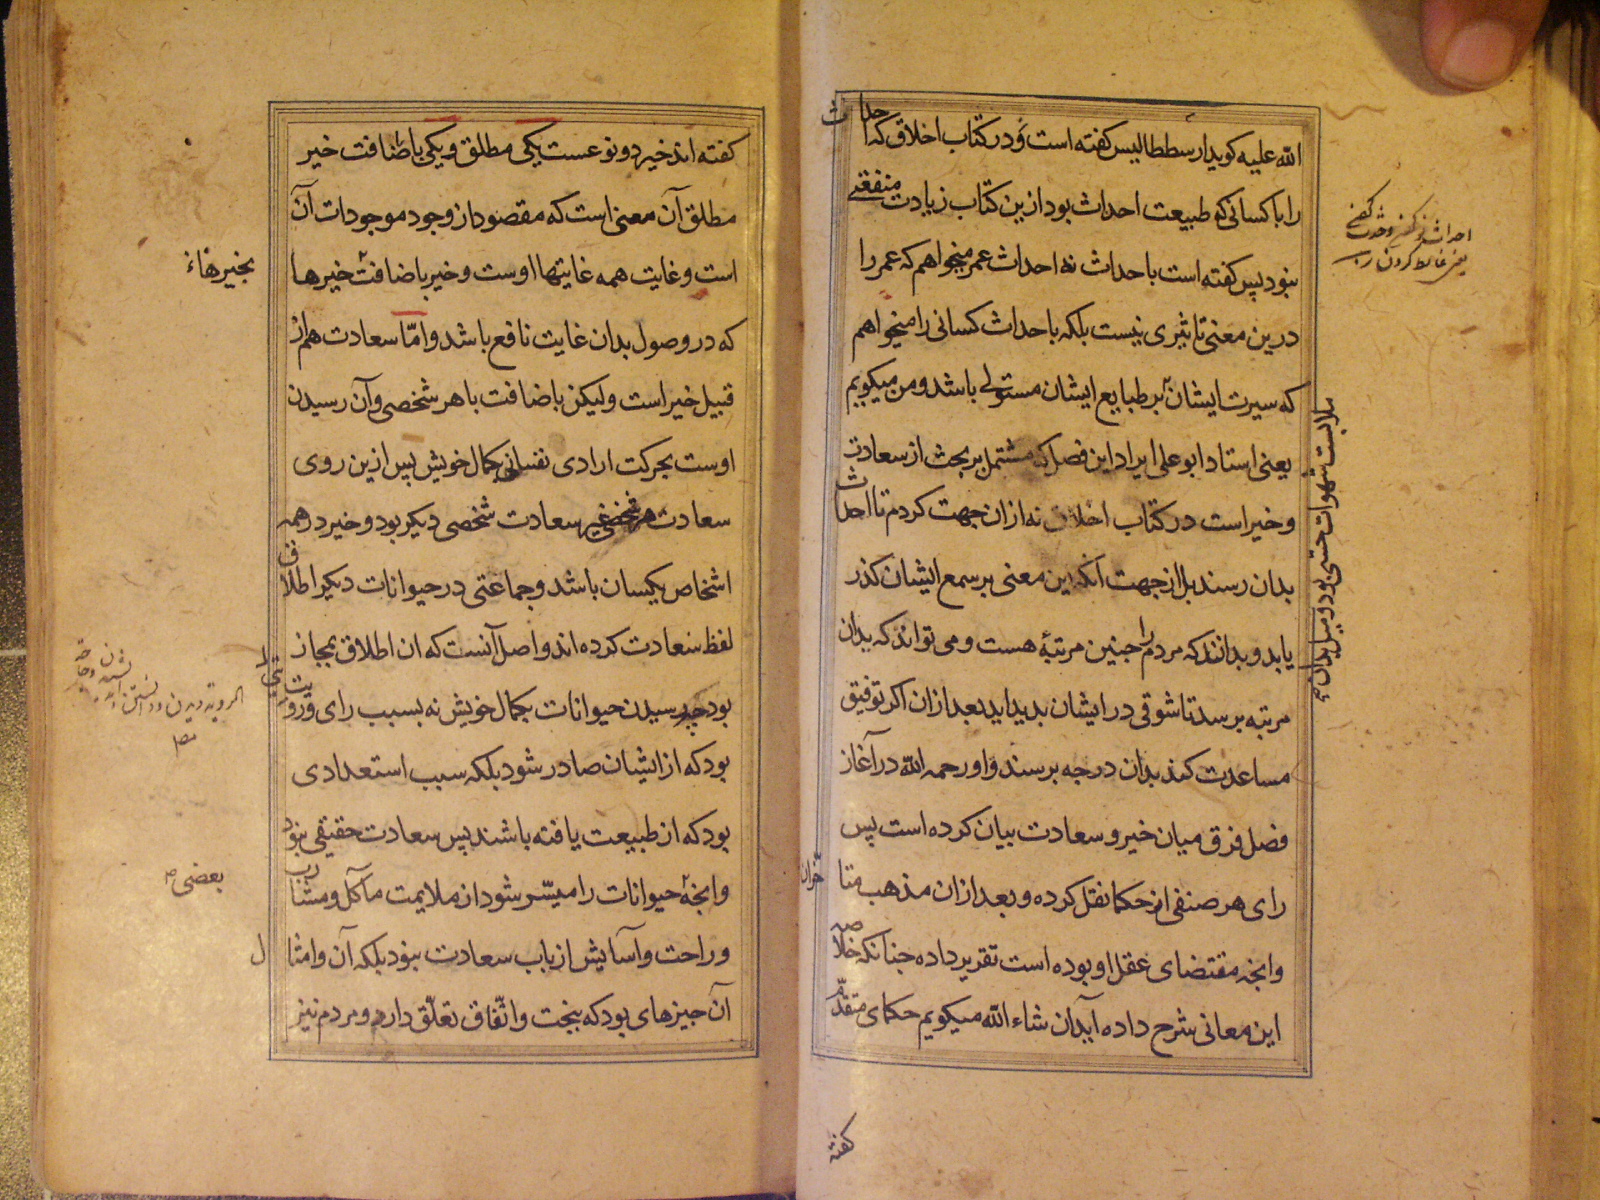 الله علیه کوید ارسططالیس کفته است و در کتاب اخلاق که احداث
را با کسانی که طبیعت احداث بود ازین کتاب زیادت منفعتی
نبود پس کفته است با حداث نه احداث عمر میخواهم که عمر را
درین معنی تاثیری نیست بلکه با حداث کسانی را میخواهم
که سیرت ایشان بر طبایع ایشان مستولی باشد و من میکویم
یعنی استاد ابو علی ایراد این فصل که مشتمل بر بحث از سعادت
و خیر است در کتاب اخلاق نه ازان جهت کردم تا احداث
بدان رسند بل از جهت آنکه این معنی بر سمع ایشان کذر
یابد و بدانند که مردم را جنین مرتبهٔ هست و می تواند که بدان
مرتبه برسد تا شوقی در ایشان بدید اید بعد ازان اکر توفیق
مساعدت کند بدان درجه برسند و او رحمه الله در آغاز
فصل فرق میان خیر و سعادت بیان کرده است پس
رای هر صنفی از حکما نقل کرده و بعد ازان مذهب متاخران
و انجه مقتضای عقل او بوده است تقریر داده جنانکه خلاصه
این معانی شرح داده آید ان شاء الله میکویم حکمای متقدم
ملابست شهوات حسی بود و میل بدان
کفته
کفته اند خیر دو نوعست یکی مطلق و یکی باضافت خیر
مطلق آن معنی است که مقصود از وجود موجودات آن
است و غایت همه غایتها اوست و خیر باضافت خیرها
که در وصول بدان غایت نافع باشد و امّا سعادت هم از
قبیل خیر است ولیکن باضافت با هر شخصی و آن رسیدن
اوست بحرکت ارادی نفسانی بکمال خویش پس ازین روی
سعادت هر شخصی غیر سعادت شخصی دیکر بود و خیر در همه
اشخاص یکسان باشد و جماعتی در حیوانات دیکر اطلاق
لفظ سعادت کرده اند و اصل آنست که ان اطلاق بمجاز
بود چه رسیدن حیوانات بکمال خویش نه بسبب رای و رویتی
بود که از ایشان صادر شود بلکه سبب استعدادی
بود که از طبیعت یافته باشند پس سعادت حقیقی نبود
و انجهٔ حیوانات را میسّر شود از ملایمت مآکل و مشارب
و راحت و آسایش از باب سعادت نبود بلکه آن و امثال
آن جیزهای بود که ببخت و اتّفاق تعلّق دارد و مردم نیز
بخیرهاء
بعضی